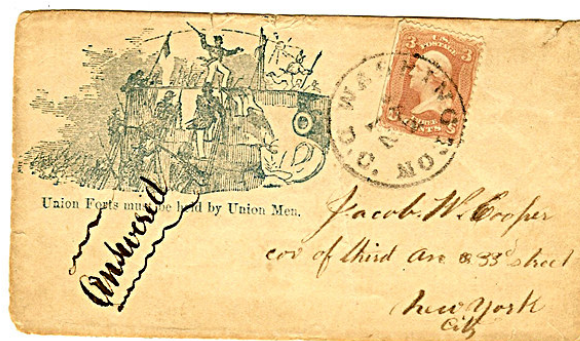 Union Forts must be held by Union Men.
answered
WASHINGTON D.C.
3 U.S. 3
POSTAGE
THREE CENTS
Jacob W. Cooper
cor of third Av & 33d street
New York
City